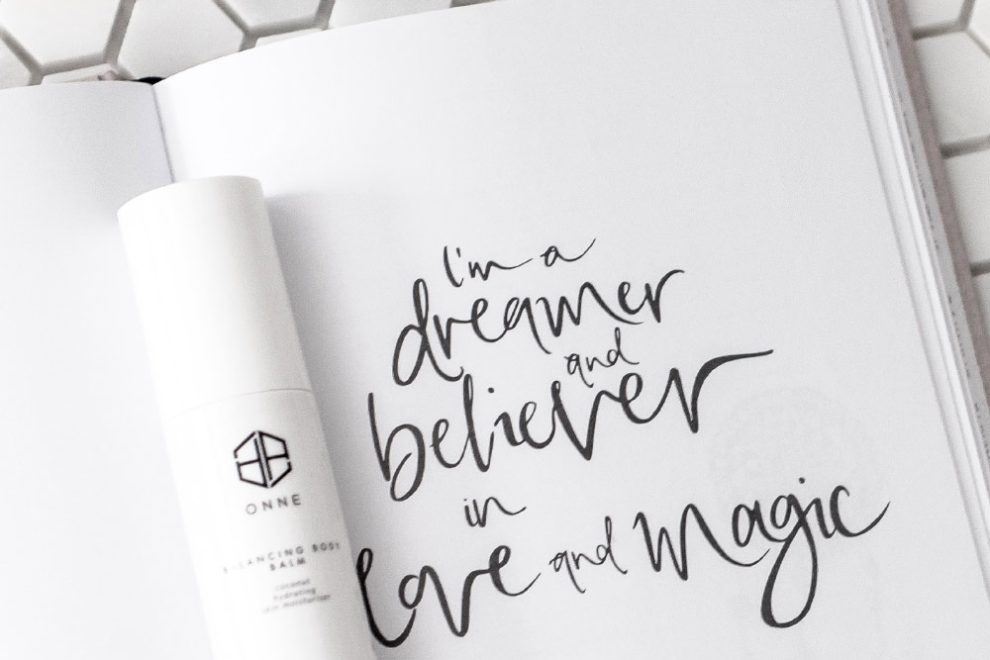 I'm a
dreamer
and
believer
in
love and magic
ONNE
BALANCING BODY
BALM
coconut
hydrating
skin moisturiser